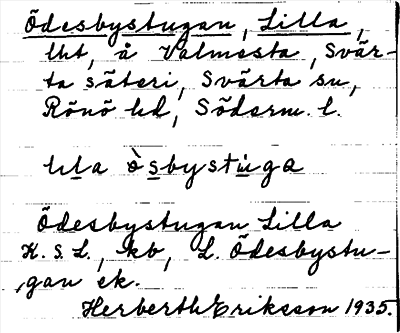 Ödesbystugan, Lilla,
lht, å Valmesta, Svär-
ta säteri, Svärta sn,
Rönö hd, Söderm. l.
lila òsbystùga
Ödesbystugan Lilla
H. S. L., kb, L. Ödesbystu-
gan ek.
Herberth Eriksson 1935.